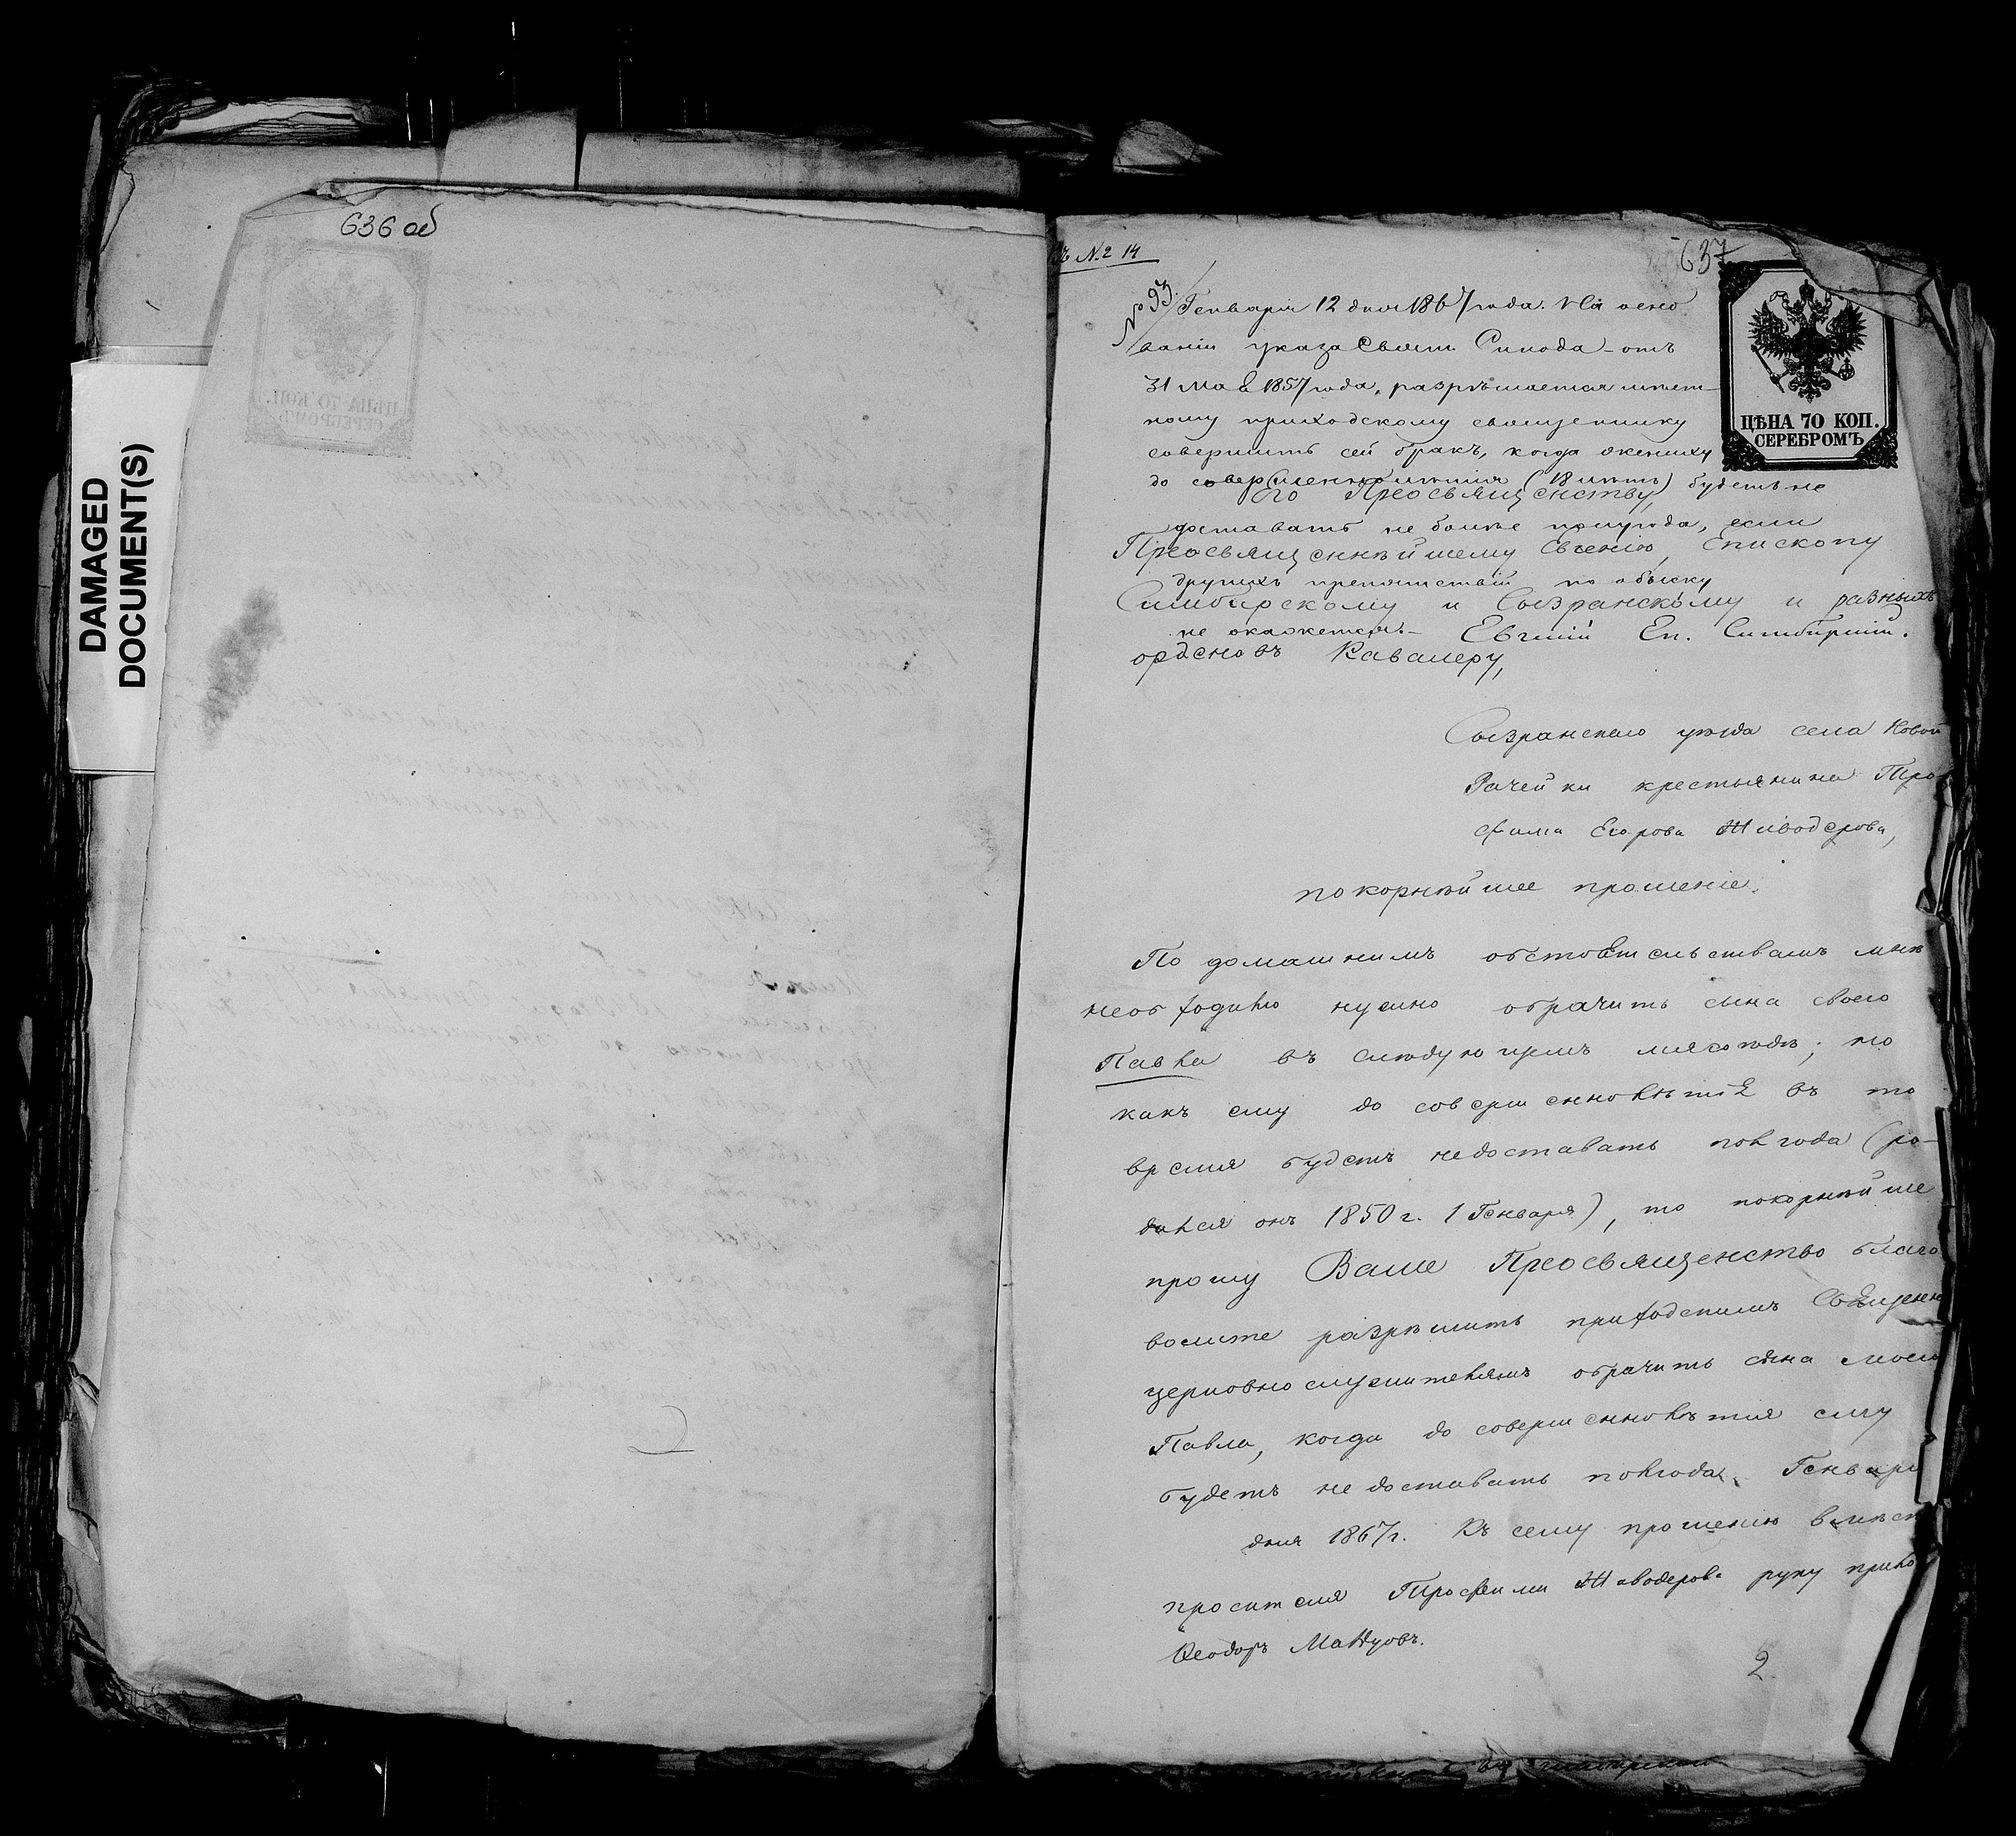 636 об
DAMAGED
DOCUMENT(S)
№ 14
637
№ 93. Генваря 12 дня 1867 года. На осно
ваніи указа Свят. Синода отъ
31 Мая 1857 года, разрѣшается мѣст-
ному приходскому священнику
совершить сей бракъ, когда жениху
до совершеннолѣтія (18 лѣтъ) будетъ не
доставать не болѣе полугода, если
другихъ препятствій по обыску
не окажется. Евгеній Еп. Симбирскій.
ЦѢНА 70 КОП.
СЕРЕБРОМЪ
Его Преосвященству,
Преосвященнѣйшему Евгенію, Епископу
Симбирскому и Сызранскому и разныхъ
орденовъ Кавалеру,
Сызранскаго уѣзда села Новой
Рачейки крестьянина Тро
фима Егорова Живодерова,
покорнѣйшее прошеніе.
По домашнимъ обстоятельствамъ мнѣ
необходимо нужно обрачить сына своего
Павла въ слѣдующемъ мясоѣдѣ; но
какъ ему до совершеннолѣтія въ то
время будетъ недоставать полгода (ро-
дился онъ 1850 г. 1 Генваря), то покорнѣйше
прошу Ваше Преосвященство благо
волите разрѣшить приходскимъ Священно
церковнослужителямъ обрачить сына моего
Павла, когда до совершеннолѣтія ему
будетъ недоставать полгода. Генваря
дня 1867 г. Къ сему прошенію вмѣст
просителя Трофима Живодерова руку прило
Ѳеодоръ
2